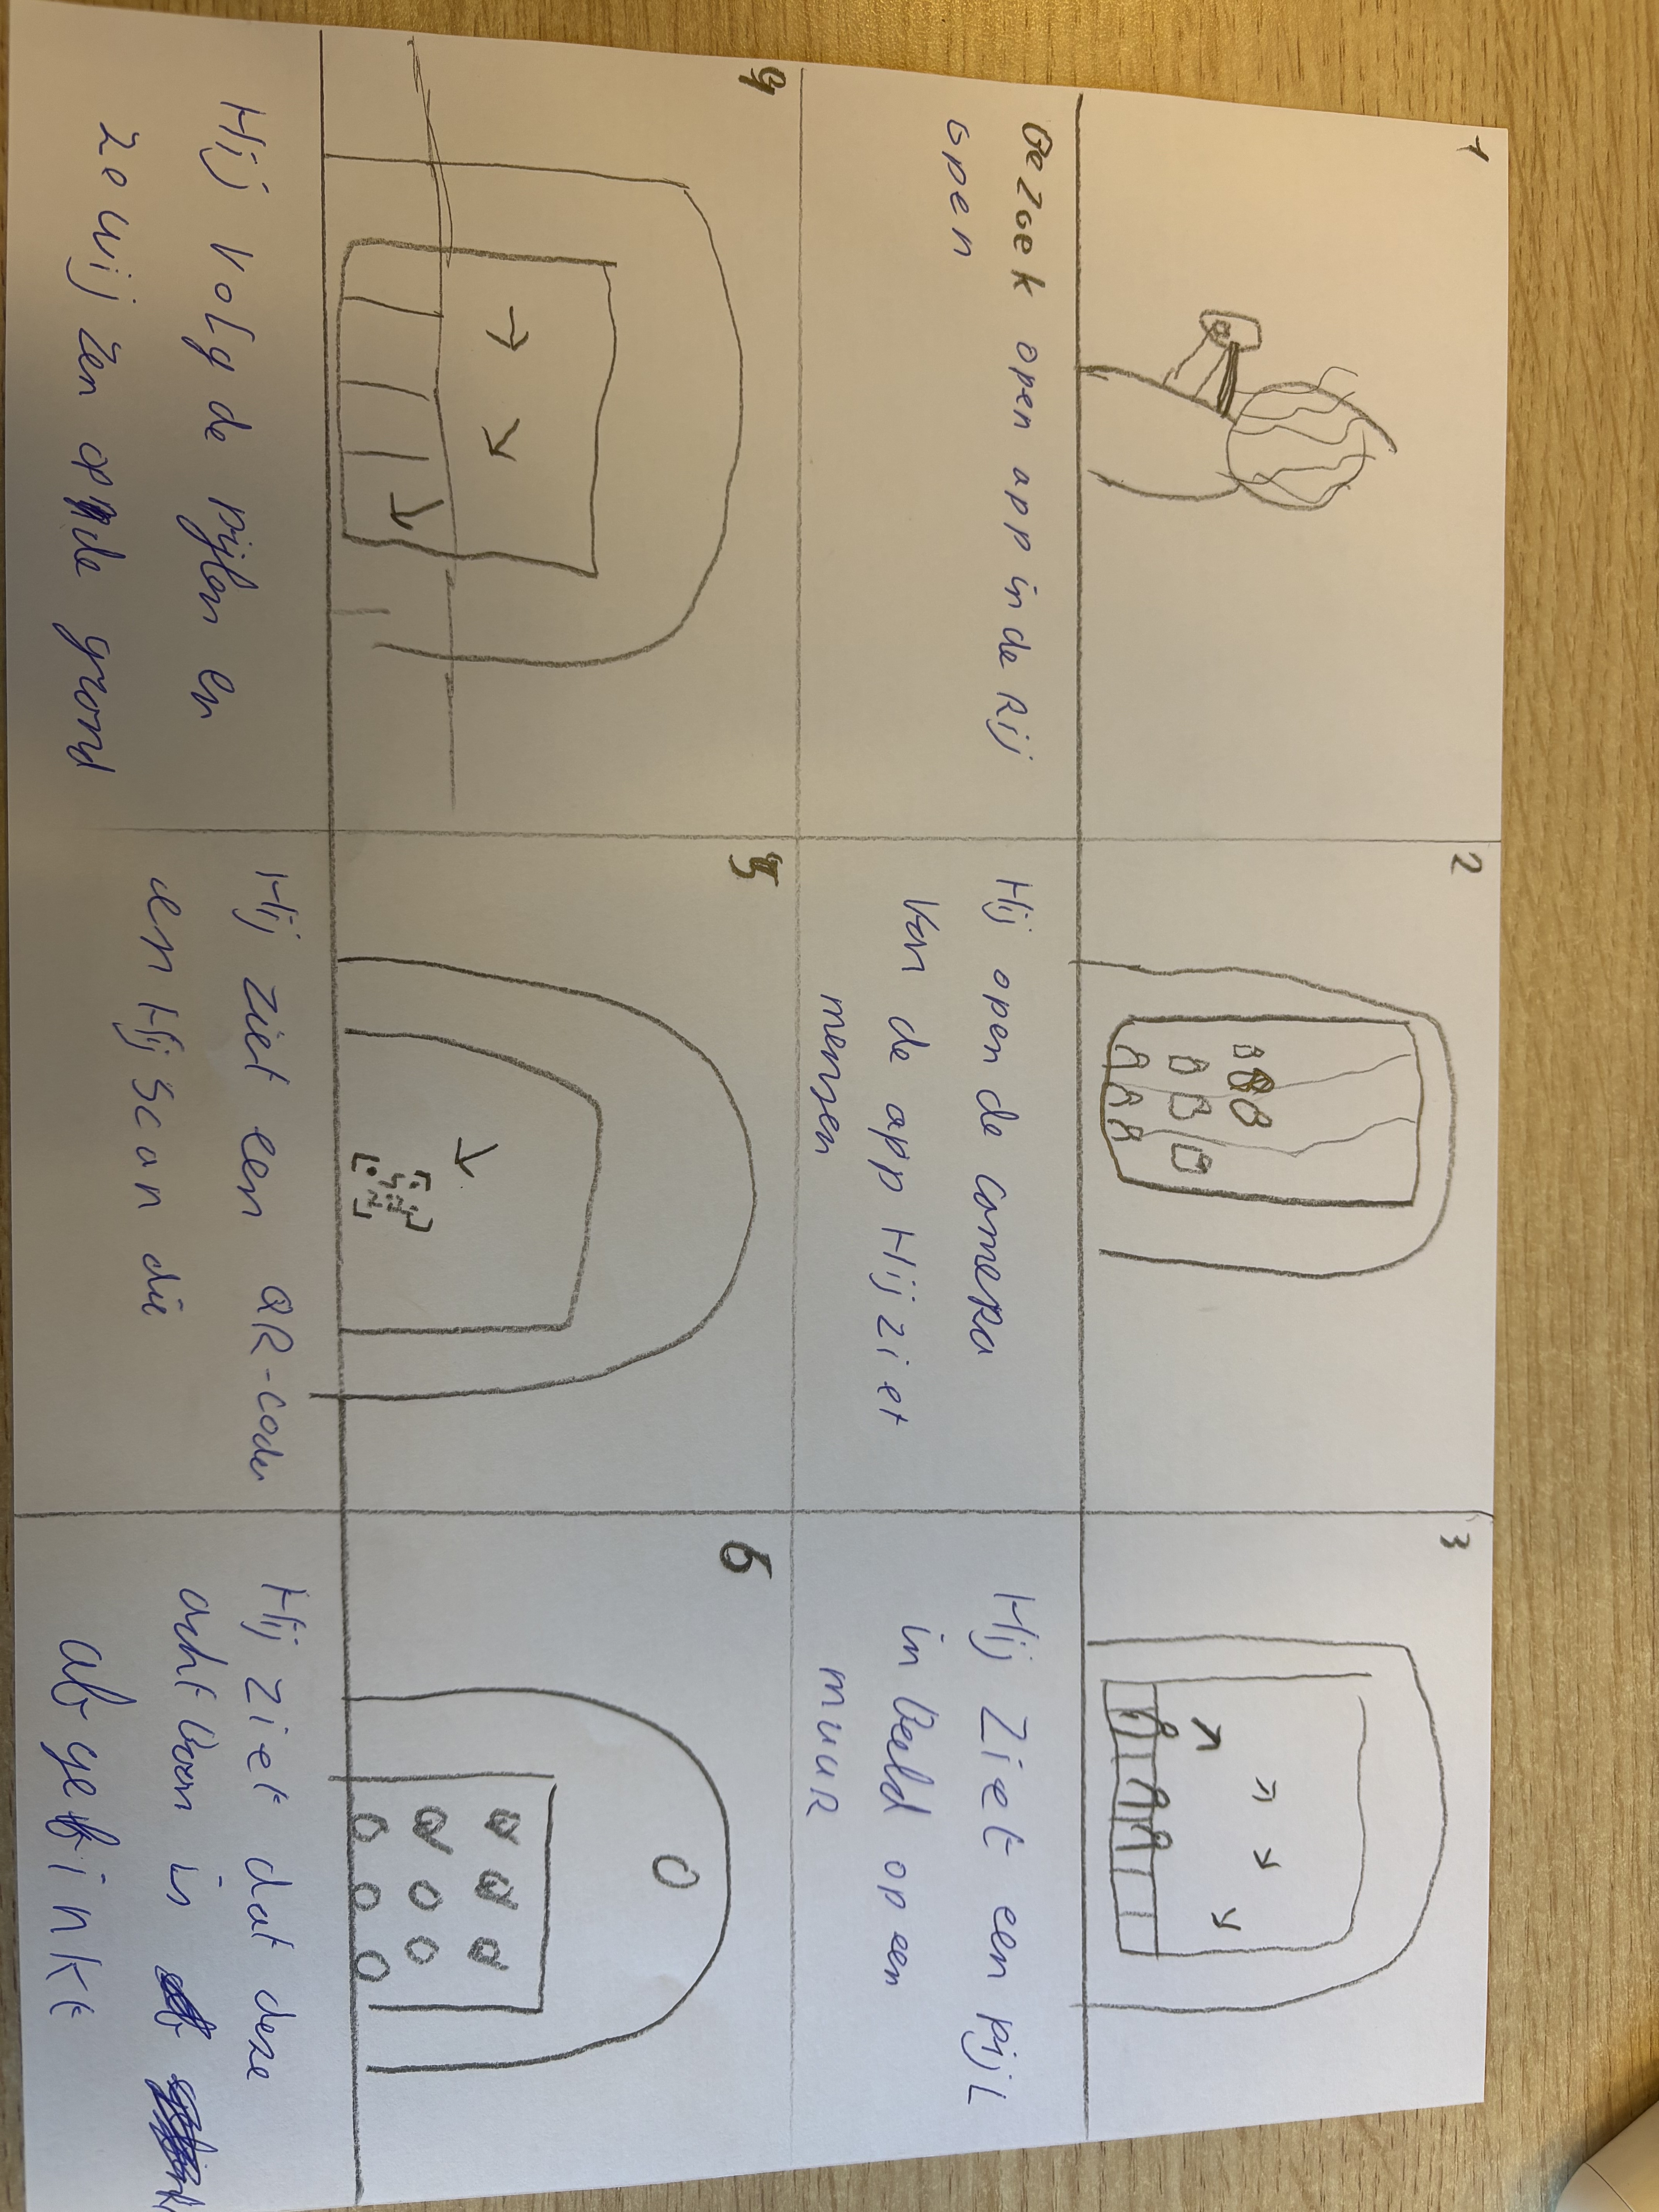 1
Gezoek open app in de Rij
open
2
Hij open de camera
Van de app Hij ziet
mensen
3
Hij Ziet een pijl
in beeld op een
muur
4
Hij volg de pijlen en
ze wijzen op de grond
5
Hij ziet een QR-code
en Hij scan die
6
Hij ziet dat deze
in